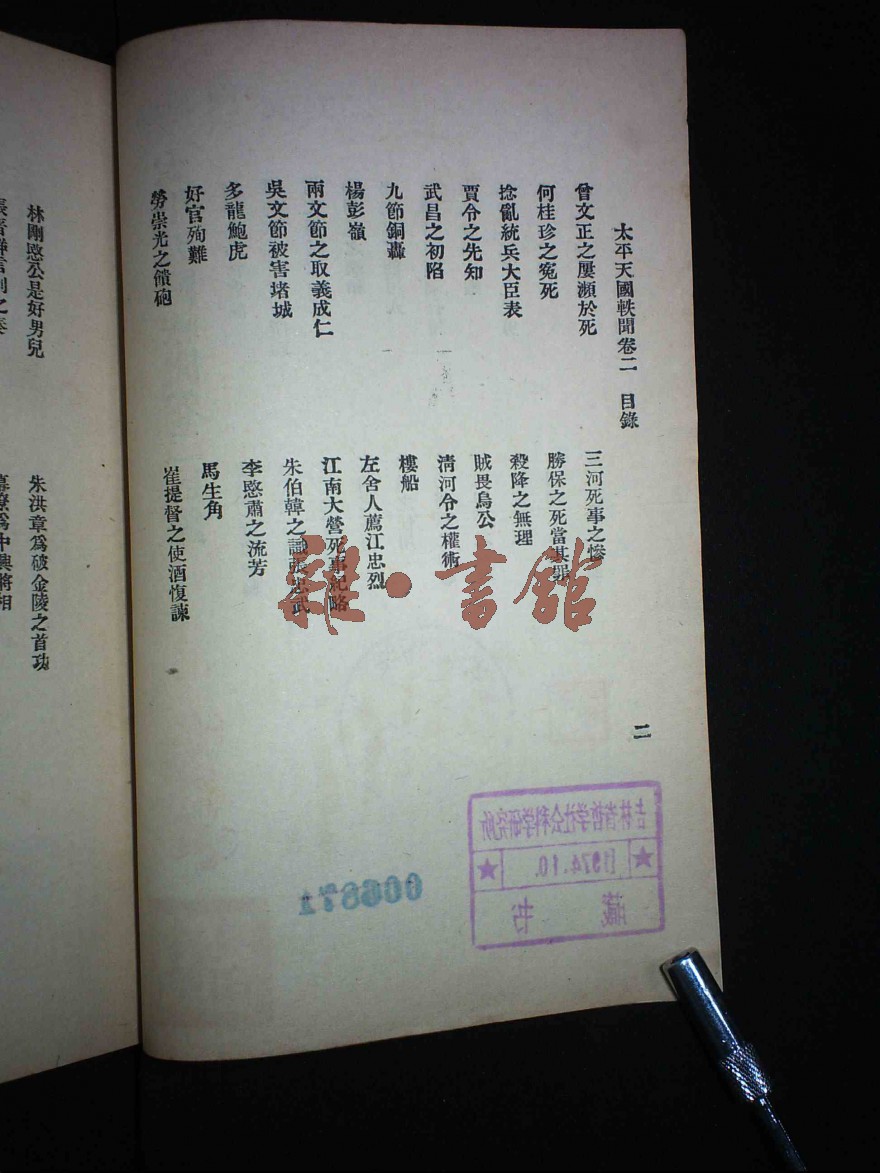 太平天國軼聞卷二 目錄
二
曾文正之屢瀕於死
三河死事之慘
何桂珍之寃死
勝保之死當其罪
捻亂統兵大臣表
殺降之無理
賈令之先知
賊畏烏公
武昌之初陷
清河令之權術
九節銅轟
樓船
楊彭嶺
左舍人薦江忠烈
兩文節之取義成仁
江南大營死事紀略
吳文節被害堵城
朱伯韓之識張忠武
多龍鮑虎
李愍肅之流芳
好官殉難
馬生角
勞崇光之饋砲
崔提督之使酒愎諫
林剛愍公是好男兒
朱洪章爲破金陵之首功
幕僚爲中興將相
雜·書館
吉林省哲学社会科学研究所
1974.10.
藏书
000671